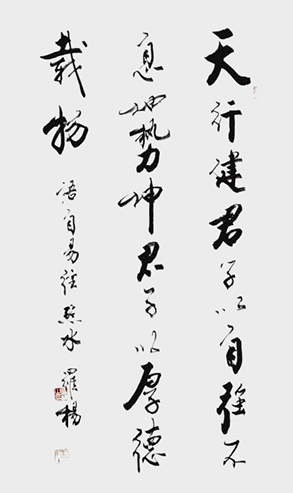 天行健君子以自強不
息地勢坤君子以厚德
載物 語自易經 照水 羅楊